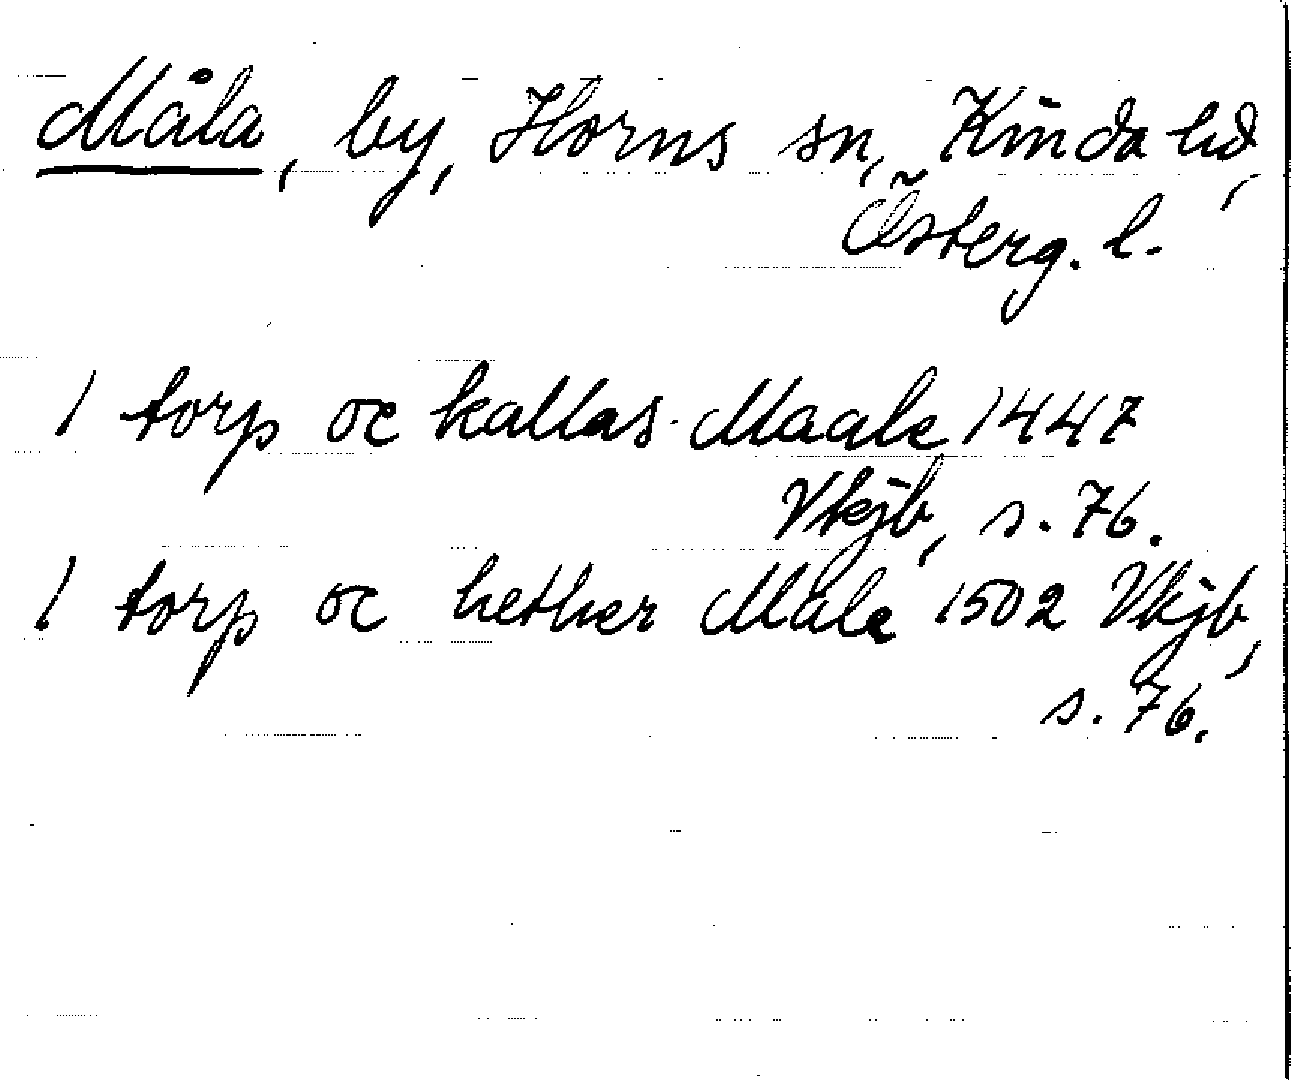 Måla, by, Horns sn, Kinda hd,
Österg. l.
1 torp oc kallas Maale 1447
Vkjb, s. 76.
1 torp oc hether Male 1502 Vkjb,
s. 76.